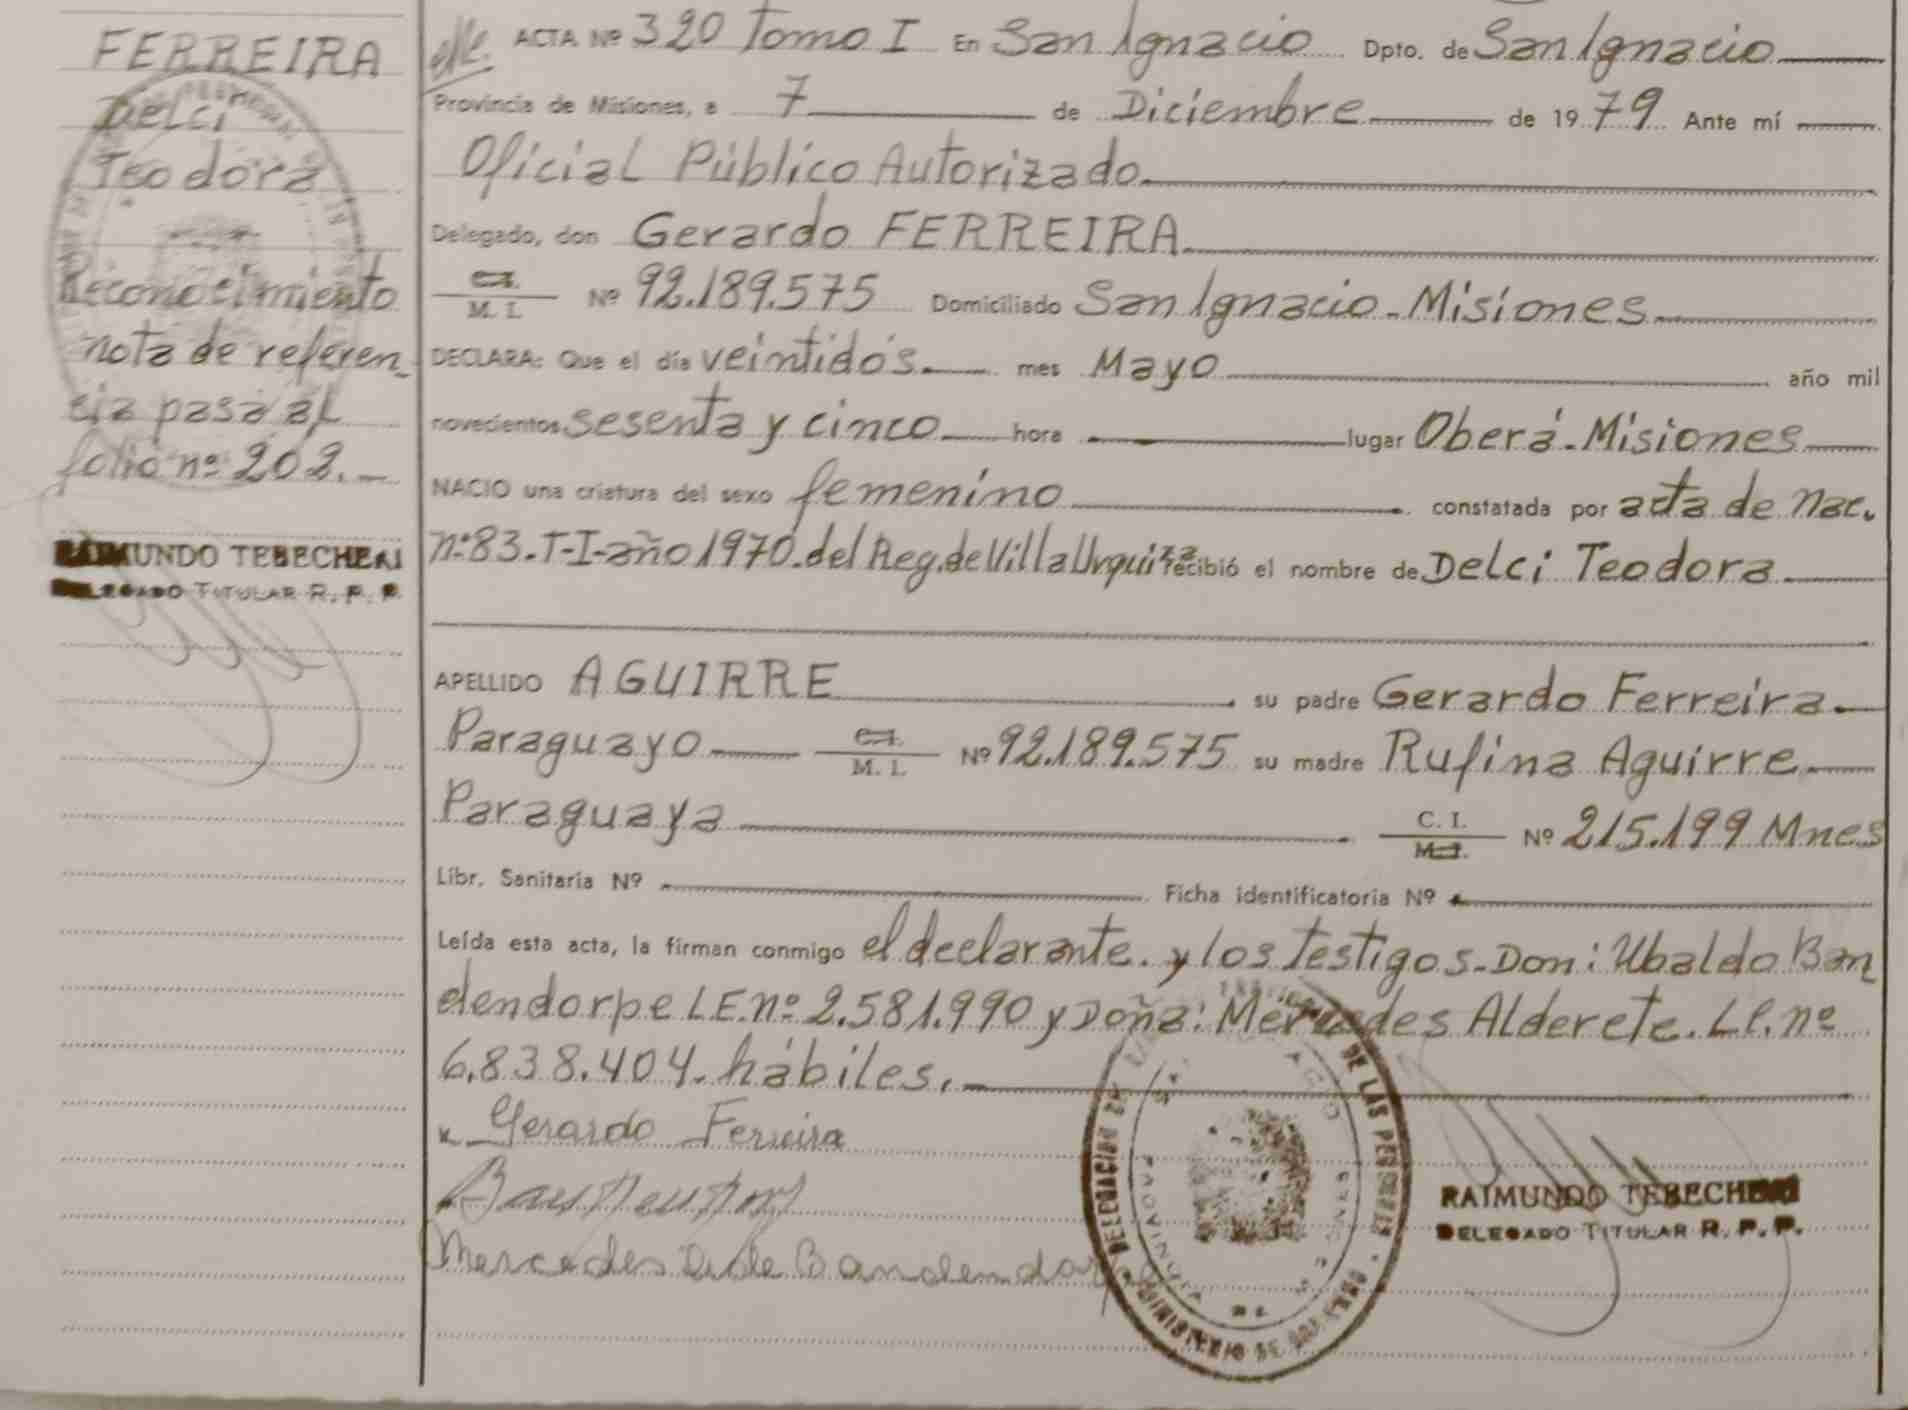 FERREIRA
Delci
Teodora
Reconocimiento
nota de referen-
cia pasa al
folio nº 202.-
RAIMUNDO TEBECHERI
DELEGADO TITULAR R. P. P.
ACTA Nº 320 Tomo I En San Ignacio Dpto. de San Ignacio
Provincia de Misiones, a 7 de Diciembre de 1979 Ante mí
Oficial Público Autorizado
Delegado, don Gerardo FERREIRA
C.I.
M. I. Nº 92.189.575 Domiciliado San Ignacio-Misiones
DECLARA: Que el día veintidós mes Mayo año mil
novecientos sesenta y cinco hora lugar Oberá-Misiones
NACIO una criatura del sexo femenino constatada por acta de nac.
nº83.T-I-año 1970.del Reg.de Villa Urquiza recibió el nombre de Delci Teodora
APELLIDO AGUIRRE su padre Gerardo Ferreira
Paraguayo C.I. M. I. Nº 92.189.575 su madre Rufina Aguirre
Paraguaya C. I. M. I. Nº 215.199 Mnes
Libr. Sanitaria Nº Ficha identificatoria Nº
Leída esta acta, la firman conmigo el declarante. y los testigos-Don: Ubaldo Ban
dendorpe L.E.nº 2.581.990 y Doña: Mercedes Alderete. L.C. nº
6.838.404. hábiles.
x Gerardo Ferreira
Mercedes A de Bandendorpe
DELEGACION DE LAS PERSONAS
MINISTERIO DE GOBIERNO
PROVINCIA DE
RAIMUNDO TEBECHERI
DELEGADO TITULAR R. P. P.